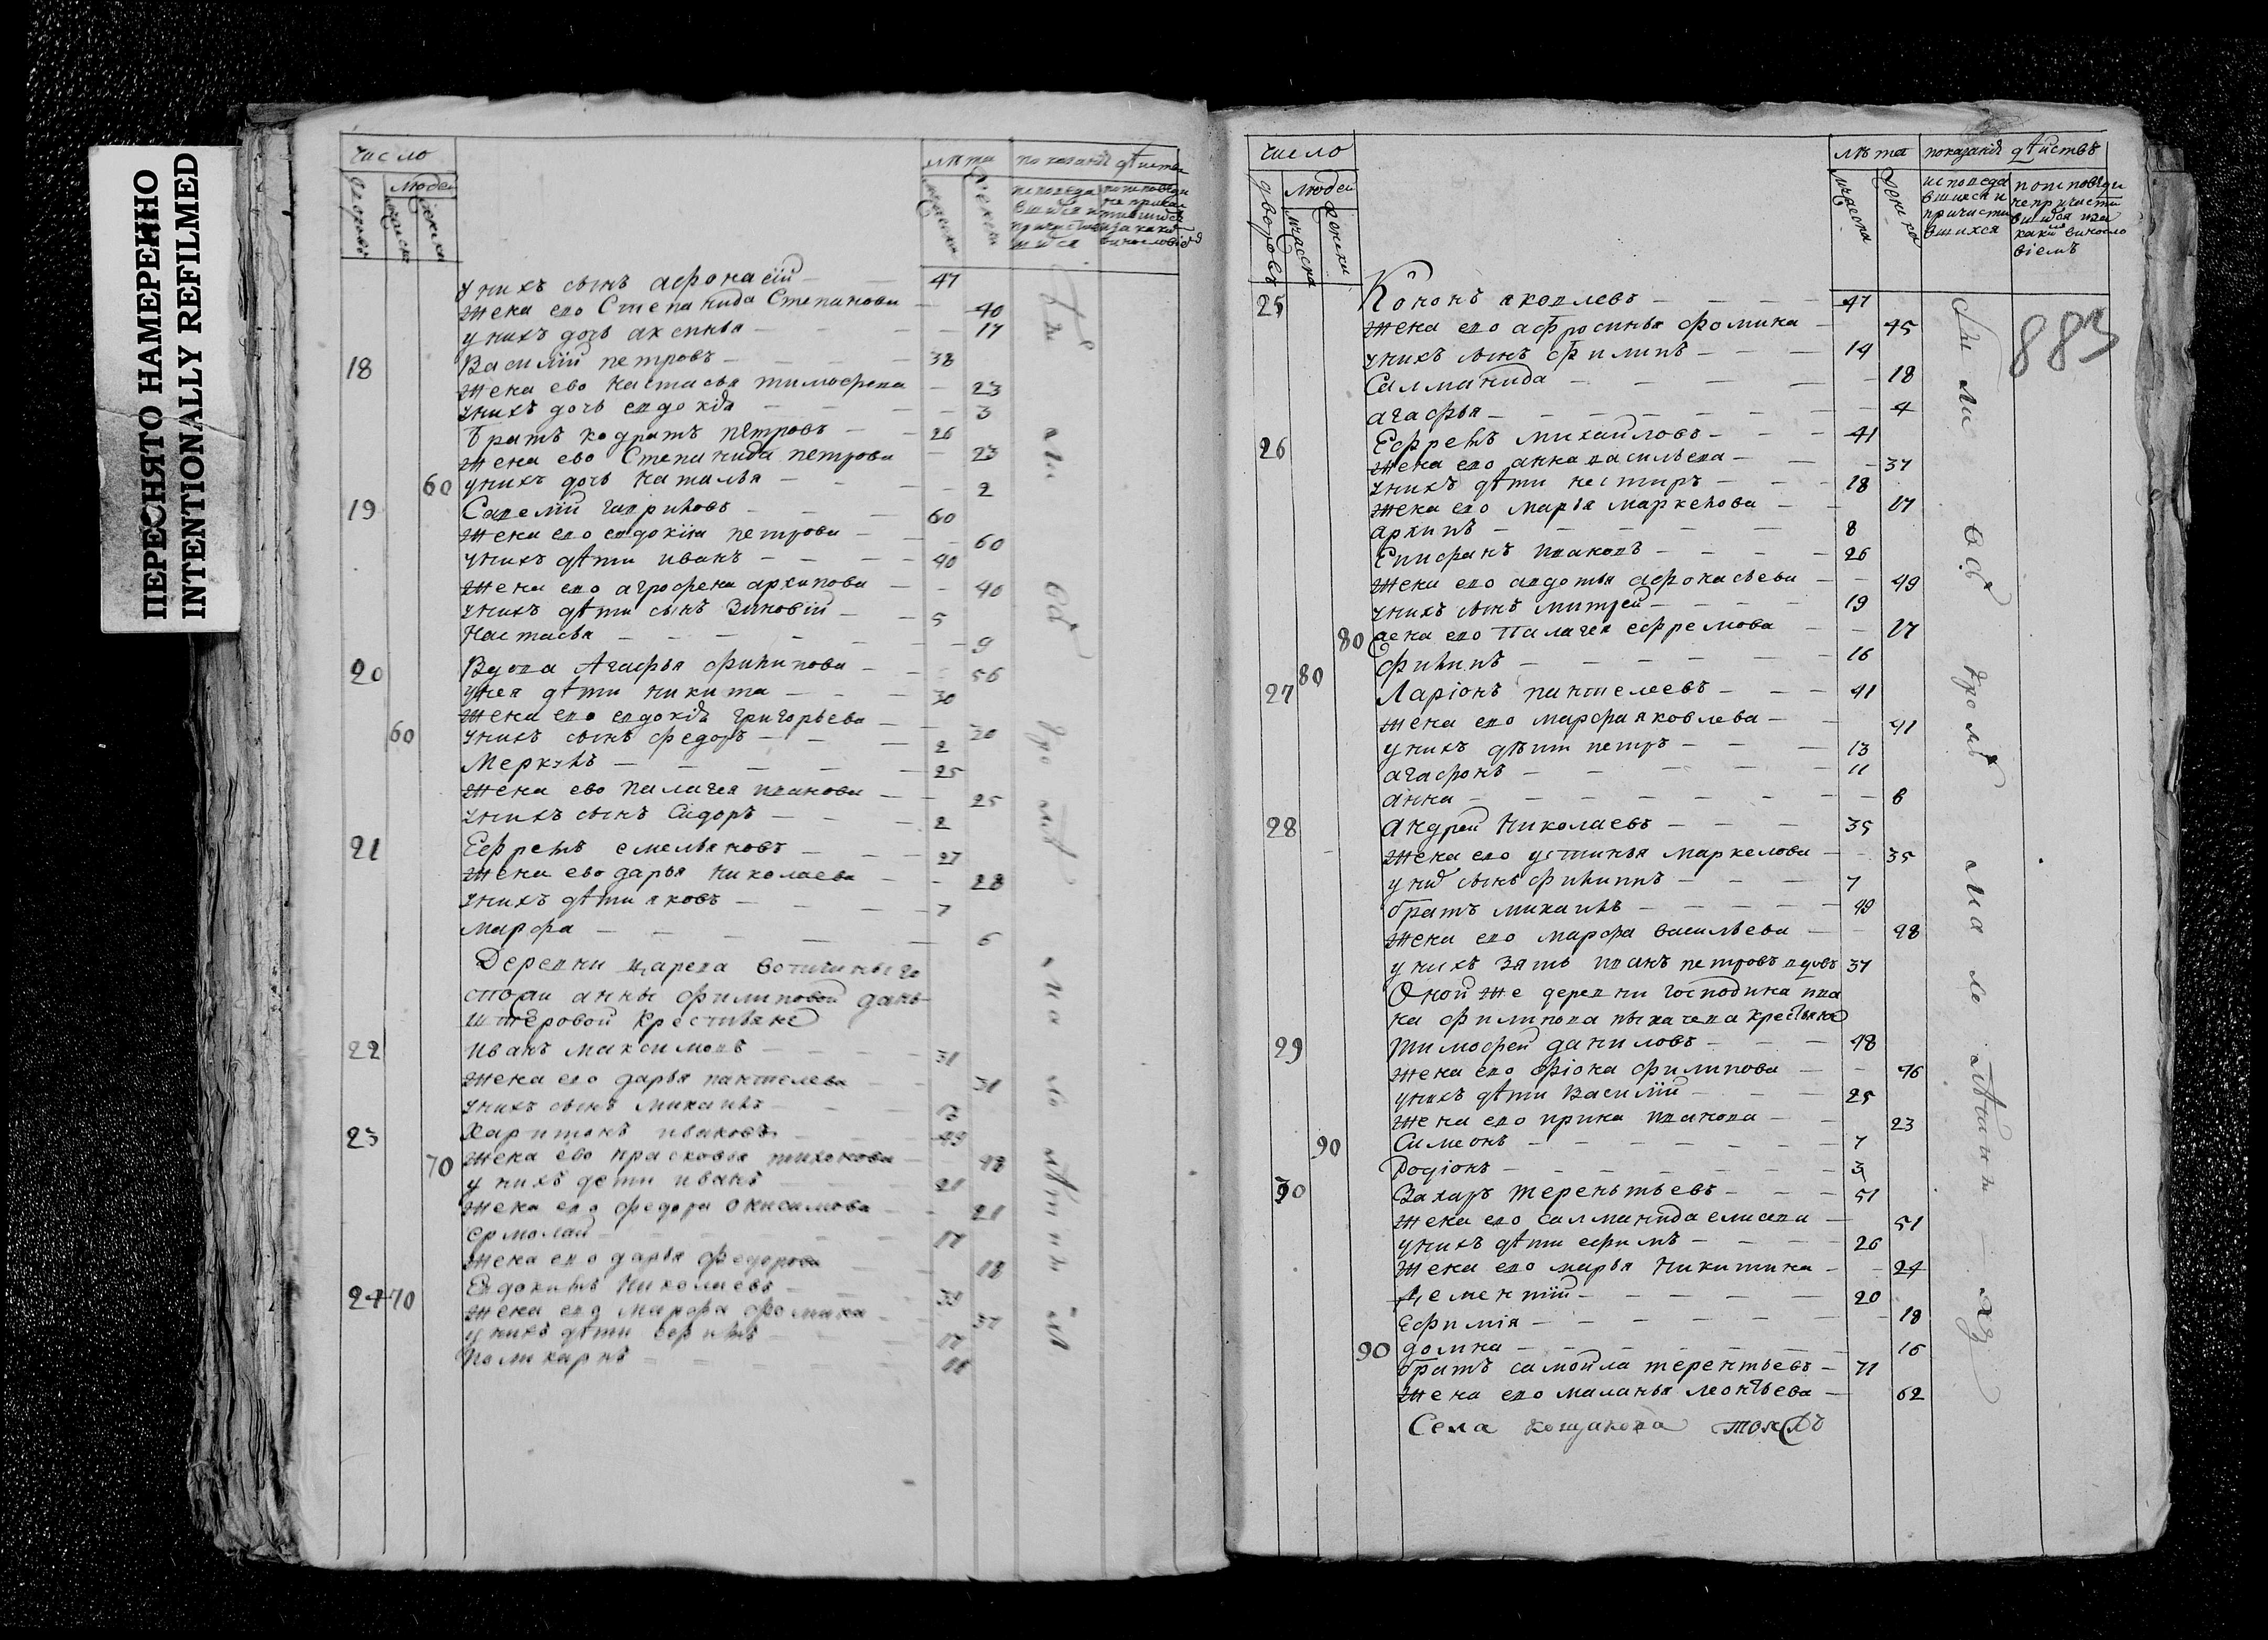 ПЕРЕСНЯТО НАМЕРЕННО
INTENTIONALLY REFILMED
число
людей
лѣта
показаніе дѣйства
у нихъ сынъ афонасей 47
жена ево Степанида Степанова 40
у нихъ дочь аксинья 17
18 Василій петровъ 38
жена ево настасья тимофеева 23
у нихъ дочь евдокія 3
братъ кодратъ петровъ 26
жена ево Степанида петрова 23
60 у нихъ дочь наталья 2
19 Савелій гавриловъ 60
жена ево евдокия петрова 60
у нихъ дѣти иванъ 40
жена ево агрофена архипова 40
у нихъ дѣти сынъ Зиновій 5
Настасья 9
20 Вдова Агафья филипова 56
у нея дѣти никита 30
жена ево евдокія григорьева 30
60 у нихъ сынъ федоръ 2
Меркулъ 25
жена ево палагея иванова 25
у нихъ сынъ Сидоръ 2
21 Ефремъ емельяновъ 27
жена ево дарья николаева 28
у нихъ дѣти яковъ 7
марфа 6
Деревни царева вотчины го
спожи анны филиповой
крестьяне
22 иванъ максимовъ 31
жена ево дарья пантелева 31
у нихъ сынъ михаилъ 13
23 Харитонъ ивановъ 49
70 жена ево прасковья тихонова 48
у нихъ дети иванъ 21
жена ево федора онисимова 21
ермолай 17
жена ево дарья федорова 18
24 70 Евдокимъ николаевъ 39
жена ево марфа фомина 37
у нихъ дѣти ефимъ 17
поликарпъ 16
число
людей
дворовъ
лѣта
показаніе дѣйствъ
исповеда
вшихся и
причасти
вшихся
883
25 Кононъ яковлевъ 47
жена ево афросинья фомина 45
у нихъ сынъ филипъ 14
Салманида 18
агафья 4
26 Ефремъ михайловъ 41
жена ево анна васильева 37
у нихъ дѣти нестиръ 18
жена ево марья маркелова 17
архипъ 8
Епифанъ ивановъ 26
жена ево авдотья афонасьева 49
у нихъ сынъ митрей 19
80 жена ево Палагея ефремова 17
80 филипъ 16
27 Ларіонъ пантелеевъ 41
жена ево марфа яковлева 41
у нихъ дѣти петръ 13
агафонъ 11
анна 8
28 андрей николаевъ 35
жена ево устинья маркелова 35
у них сынъ филиппъ 7
братъ михаилъ 49
жена ево марфа васильева 48
у нихъ зять иванъ петровъ вдовъ 37
Оной же деревни господина ива
на филипова крестьяне
29 тимофей даниловъ 48
жена ево фіона филипова 46
у нихъ дѣти Василій 25
жена ево ирина иванова 23
90 Симеонъ 7
Родіонъ 3
30 Захаръ терентьевъ 51
жена ево салманида елисеева 51
у нихъ дѣти ефимъ 26
жена ево марья никитина 24
Дементій 20
Ефимія 18
90 домна 16
братъ самойла терентьевъ 71
жена ево маланья леонтьева 62
Села